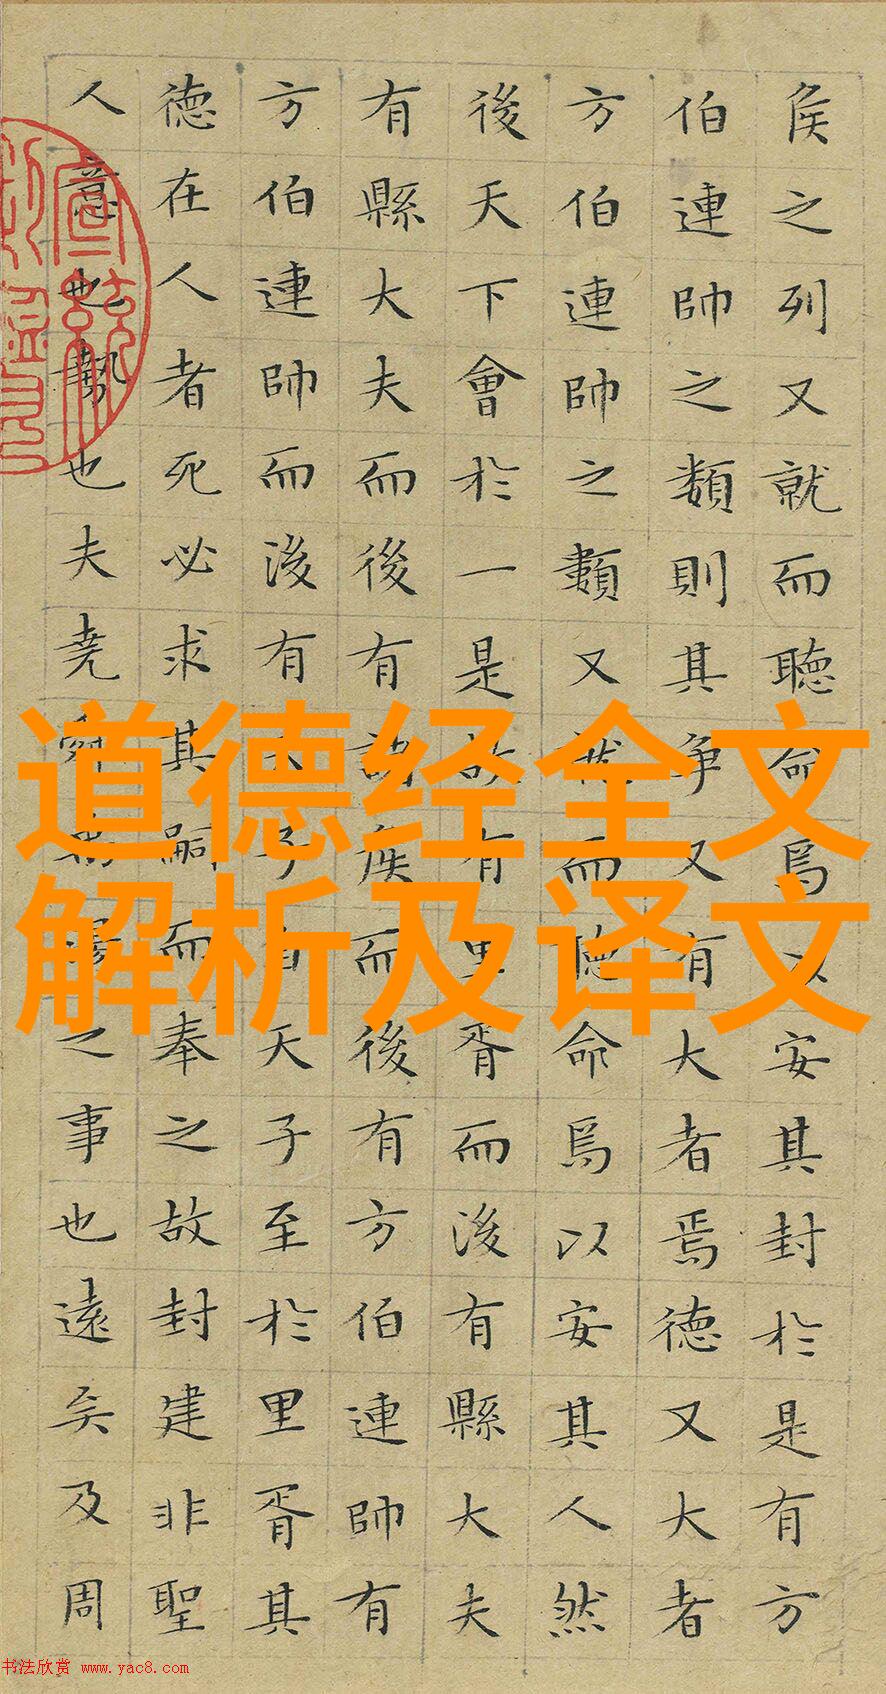 侯之列又就而聽命焉以安其封於是有方
伯連帥之類則其爭又有大者焉德又大者
方伯連帥之類又就而聽命焉以安其人然
後天下會於一是故有里胥而後有縣大夫
有縣大夫而後有諸侯而後有方伯連帥有
方伯連帥而後有天子自天子至於里胥其
德在人者死必求其嗣而奉之故封建非聖
人意也勢也夫堯舜禹湯之事也遠矣及周
道德经全文
解析及译文
书法欣赏 www.yac8.com